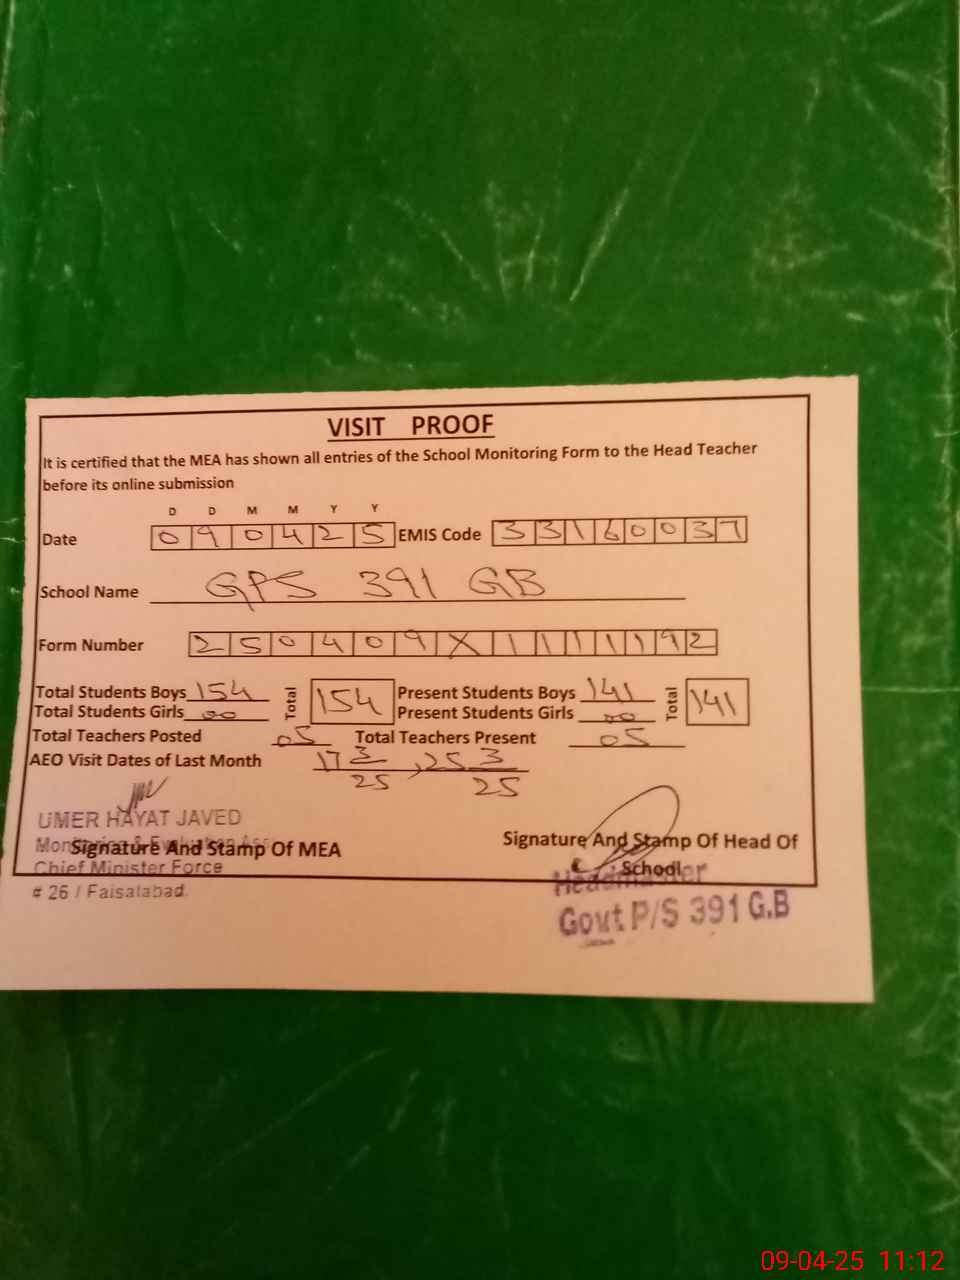 VISIT PROOF
It is certified that the MEA has shown all entries of the School Monitoring Form to the Head Teacher
before its online submission
D D M M Y Y
Date 0 9 0 4 2 5 EMIS Code 3 3 1 6 0 0 3 7
School Name GPS 391 GB
Form Number 2 5 0 4 0 9 X 1 1 1 1 1 9 2
Total Students Boys 154 Total 154 Present Students Boys 141 Total 141
Total Students Girls 00 Present Students Girls 00
Total Teachers Posted 05 Total Teachers Present 05
AEO Visit Dates of Last Month 17 3/25, 25 3/25
UMER HAYAT JAVED
Monitoring & Evaluation
Signature And Stamp Of MEA
Chief Minister Force
# 26 / Faisalabad.
Signature And Stamp Of Head Of
School
Headmaster
Govt P/S 391 G.B
09-04-25 11:12